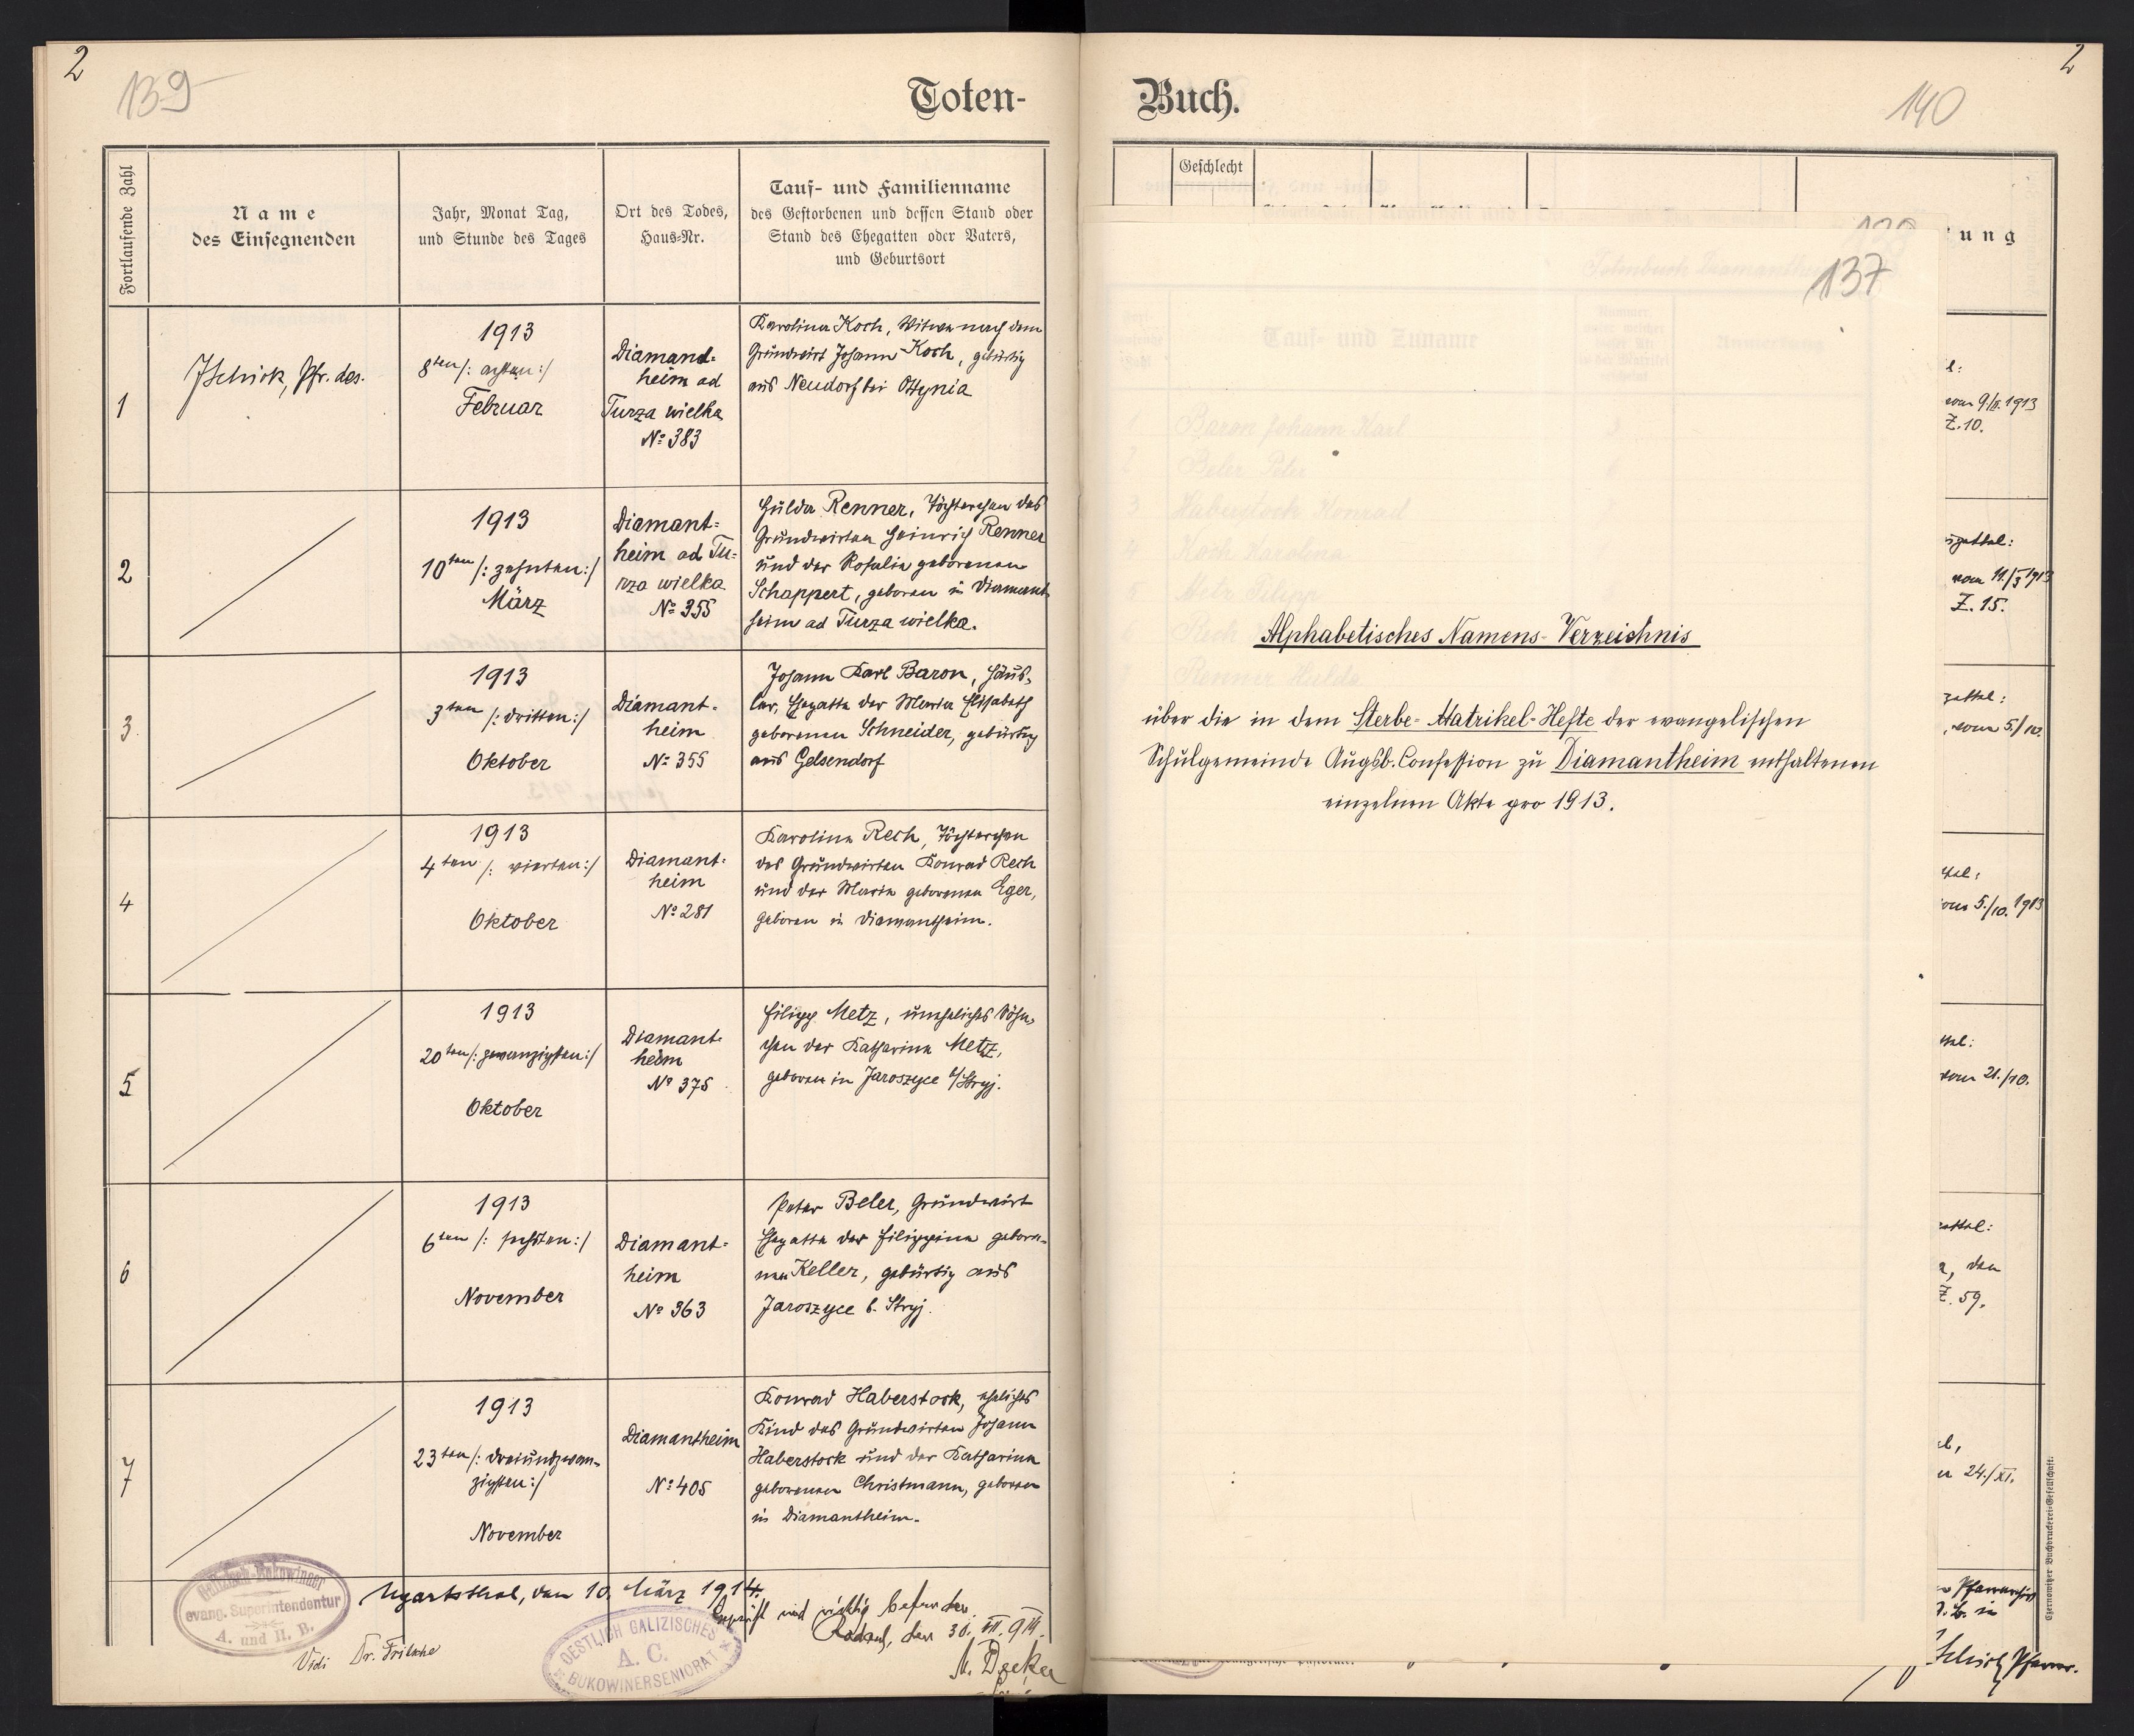 2
139
Toten-
Fortlaufende Zahl
Name
des Einsegnenden
Jahr, Monat Tag,
und Stunde des Tages
Ort des Todes,
Haus-Nr.
Tauf- und Familienname
des Gestorbenen und dessen Stand oder
Stand des Ehegatten oder Vaters,
und Geburtsort
1
JSchick, Pfr. des.
1913
8ten /: achten :/
Februar
Diamand-
heim ad
Turza wielka
No 383
Karolina Koch, Witwe nach dem
Grundwirt Johann Koch, gebürtig
aus Neudorf bei Ottynia
2
1913
10ten /: zehnten :/
März
Diamant-
heim ad Tu-
rza wielka
No 355
Hulda Renner, Töchterchen des
Grundwirten Heinrich Renner
und der Rosalia geborenen
Schappert, geboren in Diamant-
heim ad Turza wielka.
3
1913
3ten /: dritten :/
Oktober
Diamant-
heim
No 355
Johann Karl Baron, Häus-
ler, Ehegatte der Maria Elisabeth
geborenen Schneider, gebürtig
aus Gelsendorf
4
1913
4ten /: vierten :/
Oktober
Diamant-
heim
No 281
Karolina Rech, Töchterchen
des Grundwirten Konrad Rech
und der Maria geborenen Eger,
geboren in Diamantheim.
5
1913
20ten /: zwanzigsten :/
Oktober
Diamant-
heim
No 375
Filipp Metz, uneheliches Söhn-
chen der Katharina Metz,
geboren in Jaroszyce b/Stryj.
6
1913
6ten /: sechsten :/
November
Diamant-
heim
No 363
Peter Beler, Grundwirt
Ehegatte der Filippina gebore-
nen Keller, gebürtig aus
Jaroszyce b. Stryj.
7
1913
23ten /: dreiundzwan-
zigsten :/
November
Diamantheim
No 405
Konrad Haberstock, eheliches
Kind des Grundwirten Johann
Haberstock und der Katharina
geborenen Christmann, geboren
in Diamantheim.
Ugartsthal, den 10. März 1914.
Galizisch-Bukowinaer
evang. Superintendentur
A. und H. B.
Vidi Dr. Fritsche
OESTLICH GALIZISCHES
A. C.
BUKOWINERSENIORAT
Geprüft und richtig befunden
Radautz, den 30. VI. 914.
M. Decker
2
140
Buch.
Geschlecht
ung
137
Alphabetisches Namens-Verzeichnis
über die in dem Sterbe-Matrikel-Hefte der evangelischen
Schulgemeinde Augsb. Confession zu Diamantheim enthaltenen
einzelnen Akte pro 1913.
vom 9./II. 1913
Z. 10.
zettel:
vom 11./3 1913
Z. 15.
zettel:
vom 5./10.
5./10. 1913
vom 21./10.
den
Z. 59.
24./XI.
Schick Pfarrer.
Czernowitzer Buchdruckerei-Gesellschaft.